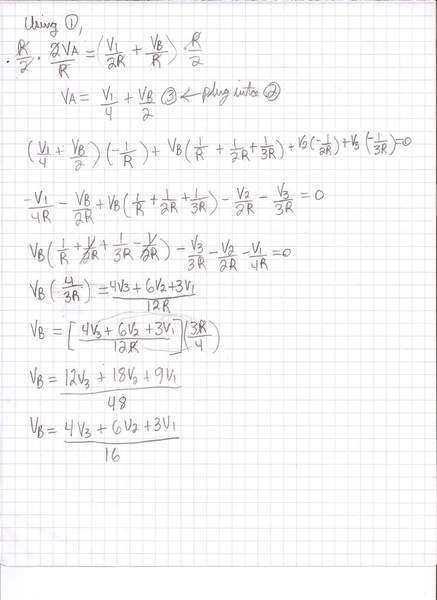 Using ①,
R/2 · 2VA/R = (V1/2R + VB/R) · R/2
VA = V1/4 + VB/2 ③ ← plug into ②
(V1/4 + VB/2)(-1/R) + VB(1/R + 1/2R + 1/3R) + V2(-1/2R) + V3(-1/3R) = 0
-V1/4R - VB/2R + VB(1/R + 1/2R + 1/3R) - V2/2R - V3/3R = 0
VB(1/R + 1/2R + 1/3R - 1/2R) - V3/3R - V2/2R - V1/4R = 0
VB(4/3R) = 4V3 + 6V2 + 3V1/12R
VB = [4V3 + 6V2 + 3V1/12R](3R/4)
VB = 12V3 + 18V2 + 9V1/48
VB = 4V3 + 6V2 + 3V1/16